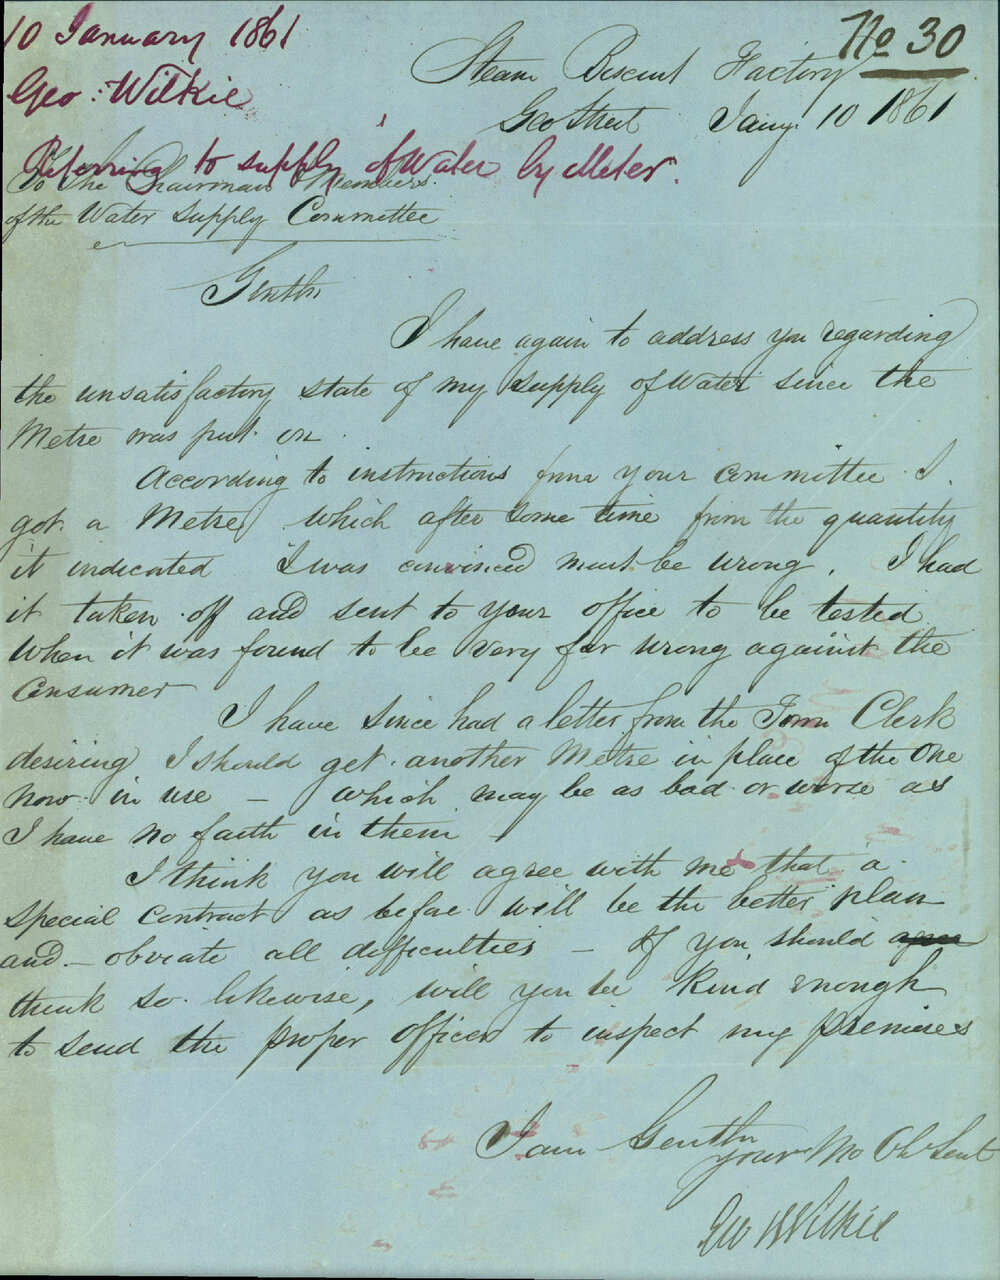 10 January 1861
Geo: Wilkie
Referring to supply of Water by Meter.
No 30
Steam Biscuit Factory
Geo Street Jany 10 1861
To the Chairman & Members
of the Water Supply Committee
Gentln
I have again to address you regarding
the unsatisfactory state of my supply of Water since the
Metre was put on
According to instructions from your Committee I
got a Metre which after some time from the quantity
it indicated I was convinced must be wrong. I had
it taken off and sent to your office to be tested
when it was found to be very far wrong against the
Consumer
I have since had a letter from the Town Clerk
desiring I should get another Metre in place of the One
now in use – which may be as bad or worse as
I have no faith in them
I think you will agree with me that a
special Contract as before will be the better plan
and – obviate all difficulties – If you should
think so likewise, will you be kind enough
to send the proper Officer to inspect my premises
I am Gentln
your Mo Obt Sevt
Geo Wilkie